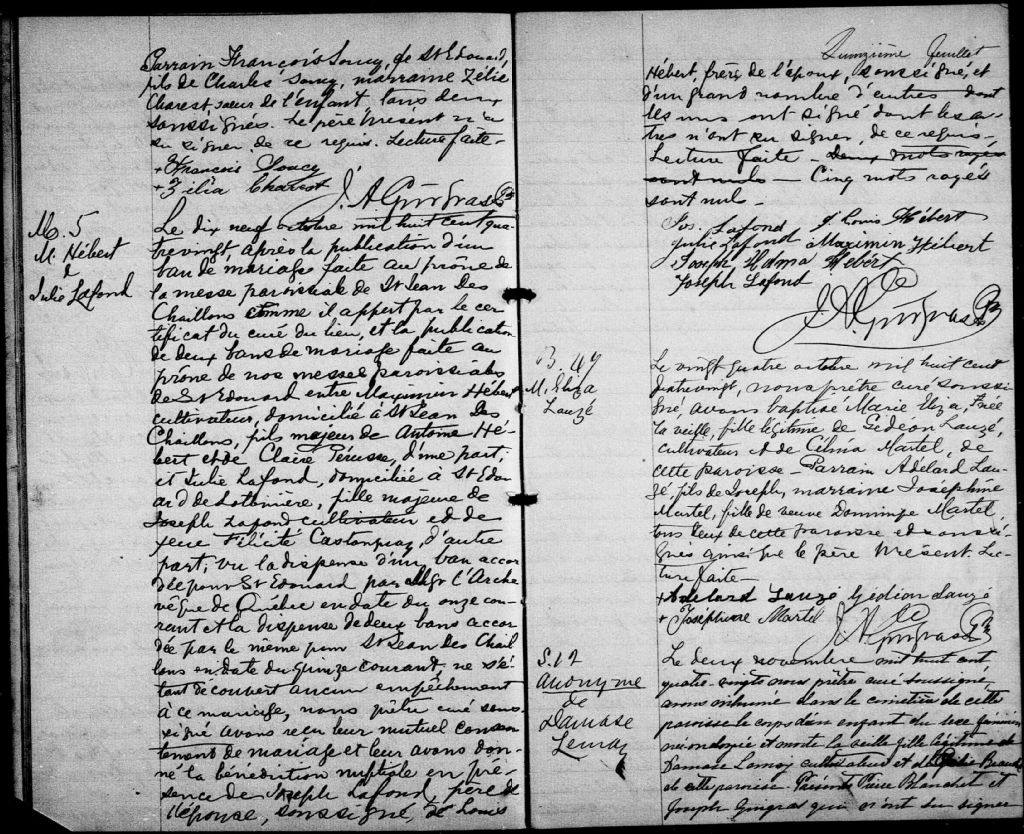 Parrain François Soucy, de St Edouard,
fils de Charles Soucy, marraine Zélie
Charest sœur de l'enfant, tous deux
soussignés. Le père présent n'a
su signer de ce requis. Lecture faite -
+ François Soucy
+ Zilia Charest
J. A. Gingras Ptr
M. 5
M. Hébert
&
Julie Lafond
Le dix neuf octobre mil huit cent qua-
trevingt, après la publication d'un
ban de mariage faite au prône de
la messe paroissiale de St Jean Des
Chaillons comme il appert par le cer-
tificat du curé du lieu, et la publication
de deux bans de mariage faite au
prône de nos messes paroissiales
de St Edouard entre Maximin Hébert
cultivateur, domicilié à St Jean Des
Chaillons, fils majeur de Antoine Hé-
bert et de Claire d'une part;
et Julie Lafond, domiciliée à St Edou-
ard de Lotbinière, fille majeure de
Joseph Lafond cultivateur et de
feue Félicité Castonguay, d'autre
part; vu la dispense d'un ban accor
dée pour St Edouard par Mgr l'Arche
vêque de Québec en date du onze cou-
rant et la dispense de deux bans accor
dée par le même pour St Jean Des Chail
lons en date du quinze courant, ne s'é-
tant découvert aucun empêchement
à ce mariage, nous prêtre curé sous-
signé avons reçu leur mutuel consen-
tement de mariage et leur avons don-
né la bénédiction nuptiale en pré-
sence de Joseph Lafond, père de
l'épouse, soussigné, de Louis
Quinzième feuillet
Hébert, frère de l'époux, soussigné, et
d'un grand nombre d'autres dont
les uns ont signé dont les au-
tres n'ont su signer, de ce requis,
Lecture faite - Deux mots rayés
sont nuls - Cinq mots rayés
sont nuls -
Jos. Lafond Louis Hébert
Julie Lafond Maximin Hébert
Joseph Hébert
Joseph Lafond
J. A. Gingras Ptr
B. 47
M. Eliza
Lauzé
Le vingt quatre octobre mil huit cent
quatrevingt, nous prêtre curé soussi-
gné, avons baptisé Marie Eliza, née
la veille, fille légitime de Gédéon Lauzé,
cultivateur et de Célina Martel, de
cette paroisse - Parrain Adélard Lau-
zé, fils de Joseph, marraine Joséphine
Martel, fille de veuve Dominique Martel,
tous deux de cette paroisse et soussi-
gnés ainsi que le père présent. Lec-
ture faite -
+ Adelard Lauzé Gedion Lauzé
+ Joséphine Martel
J. A. Gingras Ptr
S. 12
Anonyme
de
Damase
Lemay
Le deux novembre mil huit cent
quatre-vingts nous prêtre curé soussigné
avons inhumé dans le cimetière de cette
paroisse le corps d'un enfant du sexe féminin
né ondoyée et morte la veille fille légitime de
Damase Lemay cultivateur et de
de cette paroisse Présents Pierre Blanchet et
Joseph Gingras qui n'ont su signer